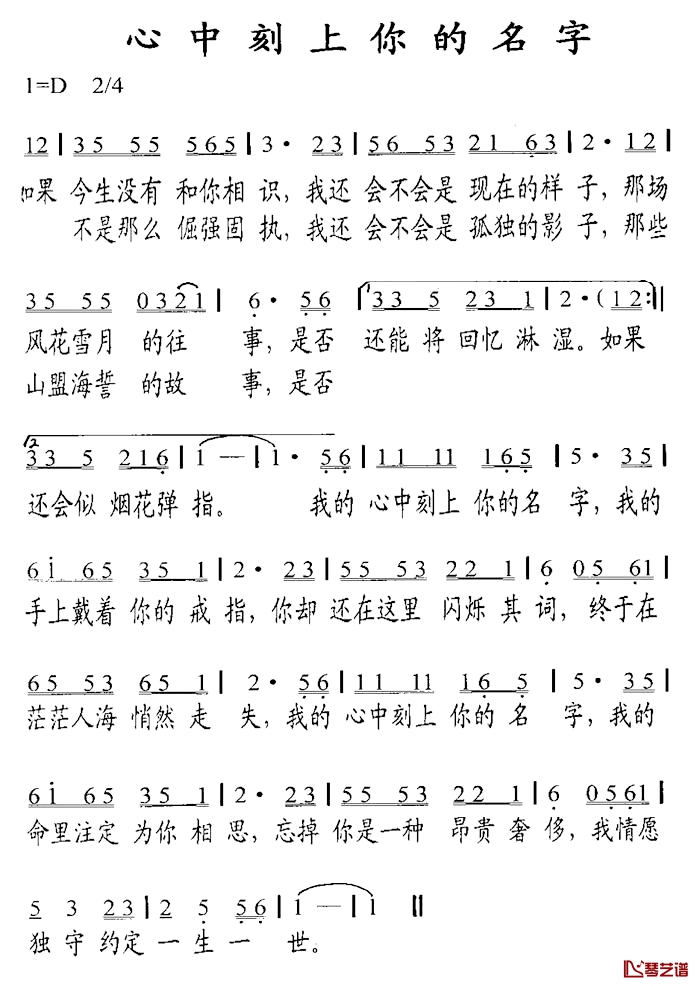 心中刻上你的名字
1=D 2/4
12 | 35 55 565 | 3· 23 | 56 53 21 63 | 2· 12 |
如果 今生没有 和你相 识，我还 会不会是 现在的样 子，那场
不是那么 倔强固 执，我还 会不会是 孤独的影 子，那些
35 55 0321 | 6· 56 | 33 5 23 1 | 2·（12 :||
风花雪月 的往 事，是否 还能 将 回忆 淋 湿。如果
山盟海誓 的故 事，是否
2
33 5 216 | 1 — | 1· 56 | 11 11 165 | 5· 35 |
还会似 烟花弹 指。 我的 心中刻上 你的名 字，我的
6i 65 35 1 | 2· 23 | 55 53 22 1 | 6 05 61 |
手上戴着 你的 戒 指，你却 还在这里 闪烁 其 词， 终于在
65 53 65 1 | 2· 56 | 11 11 16 5 | 5· 35 |
茫茫人海 悄然 走 失，我的 心中刻上 你的 名 字，我的
6i 65 35 1 | 2· 23 | 55 53 22 1 | 6 0561 |
命里注定 为你 相 思，忘掉 你是一种 昂贵 奢 侈，我情愿
5 3 23 | 2 5 56 | 1 — | 1 ||
独 守 约定 一 生 一 世。
琴艺谱